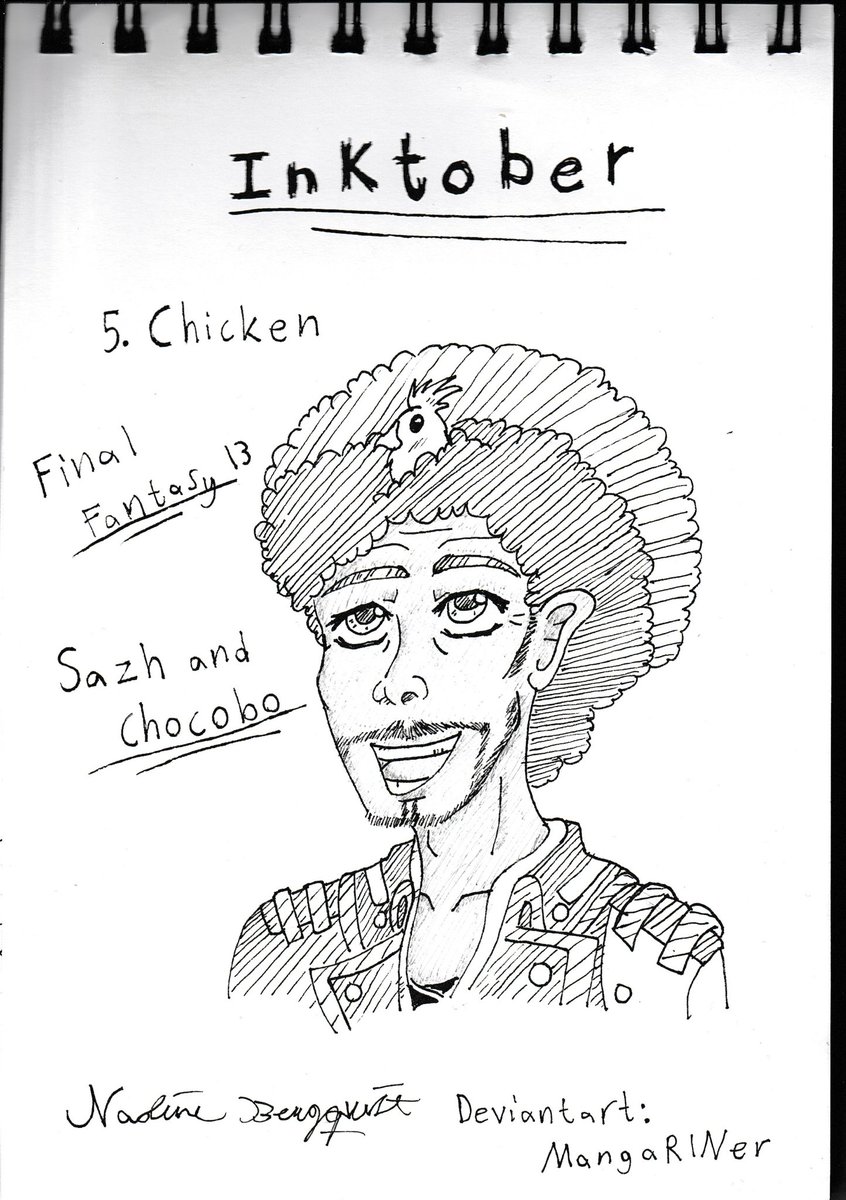 InKtober
5. Chicken
Final
Fantasy 13
Sazh and
Chocobo
Nadine Bengqvist
Deviantart:
MangaRINer